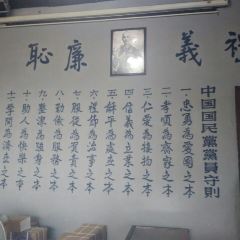 禮義廉恥
中国国民黨黨員守則
一·忠勇為愛國之本
二·孝順為齊家之本
三·仁愛為接物之本
四·信義為立業之本
五·和平為處世之本
六·禮節為治事之本
七·服從為負責之本
八·勤儉為服務之本
九·整潔為強身之本
十·助人為快樂之本
十一·學問為濟世之本